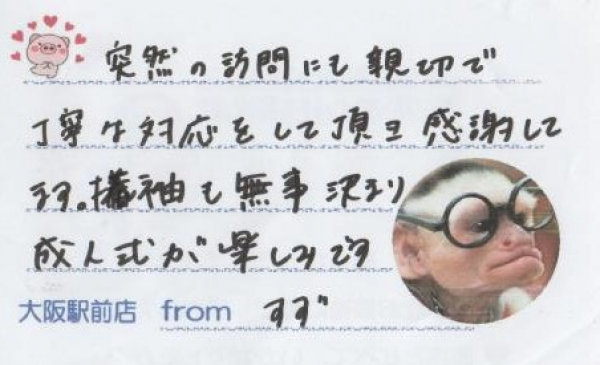 突然の訪問にも親切で
丁寧な対応をして頂き感謝して
ます。振袖も無事決まり
成人式が楽しみです
大阪駅前店 from すず